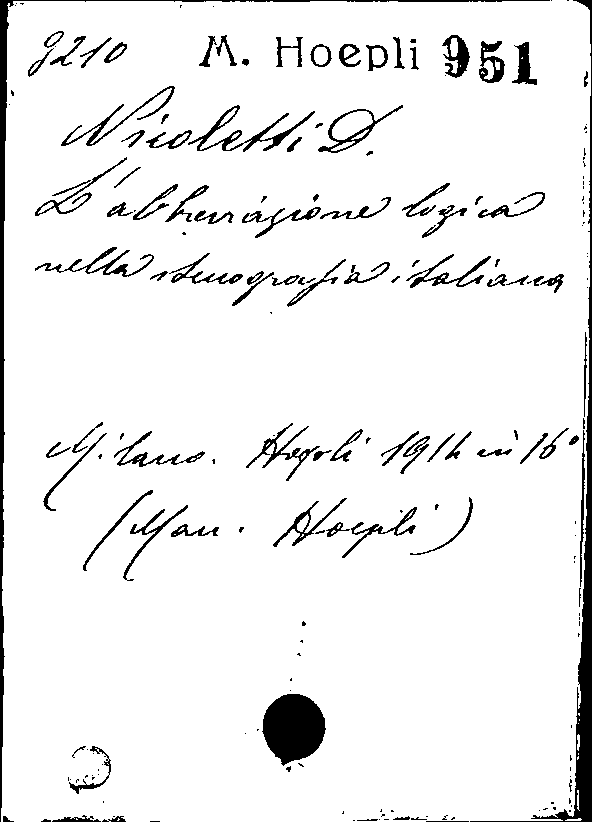 9210 M. Hoepli 951
Nicoletti D.
L'abbreviazione logica
nella stenografia italiana
Milano. Hoepli 1914 in 16°
(Man. Hoepli)